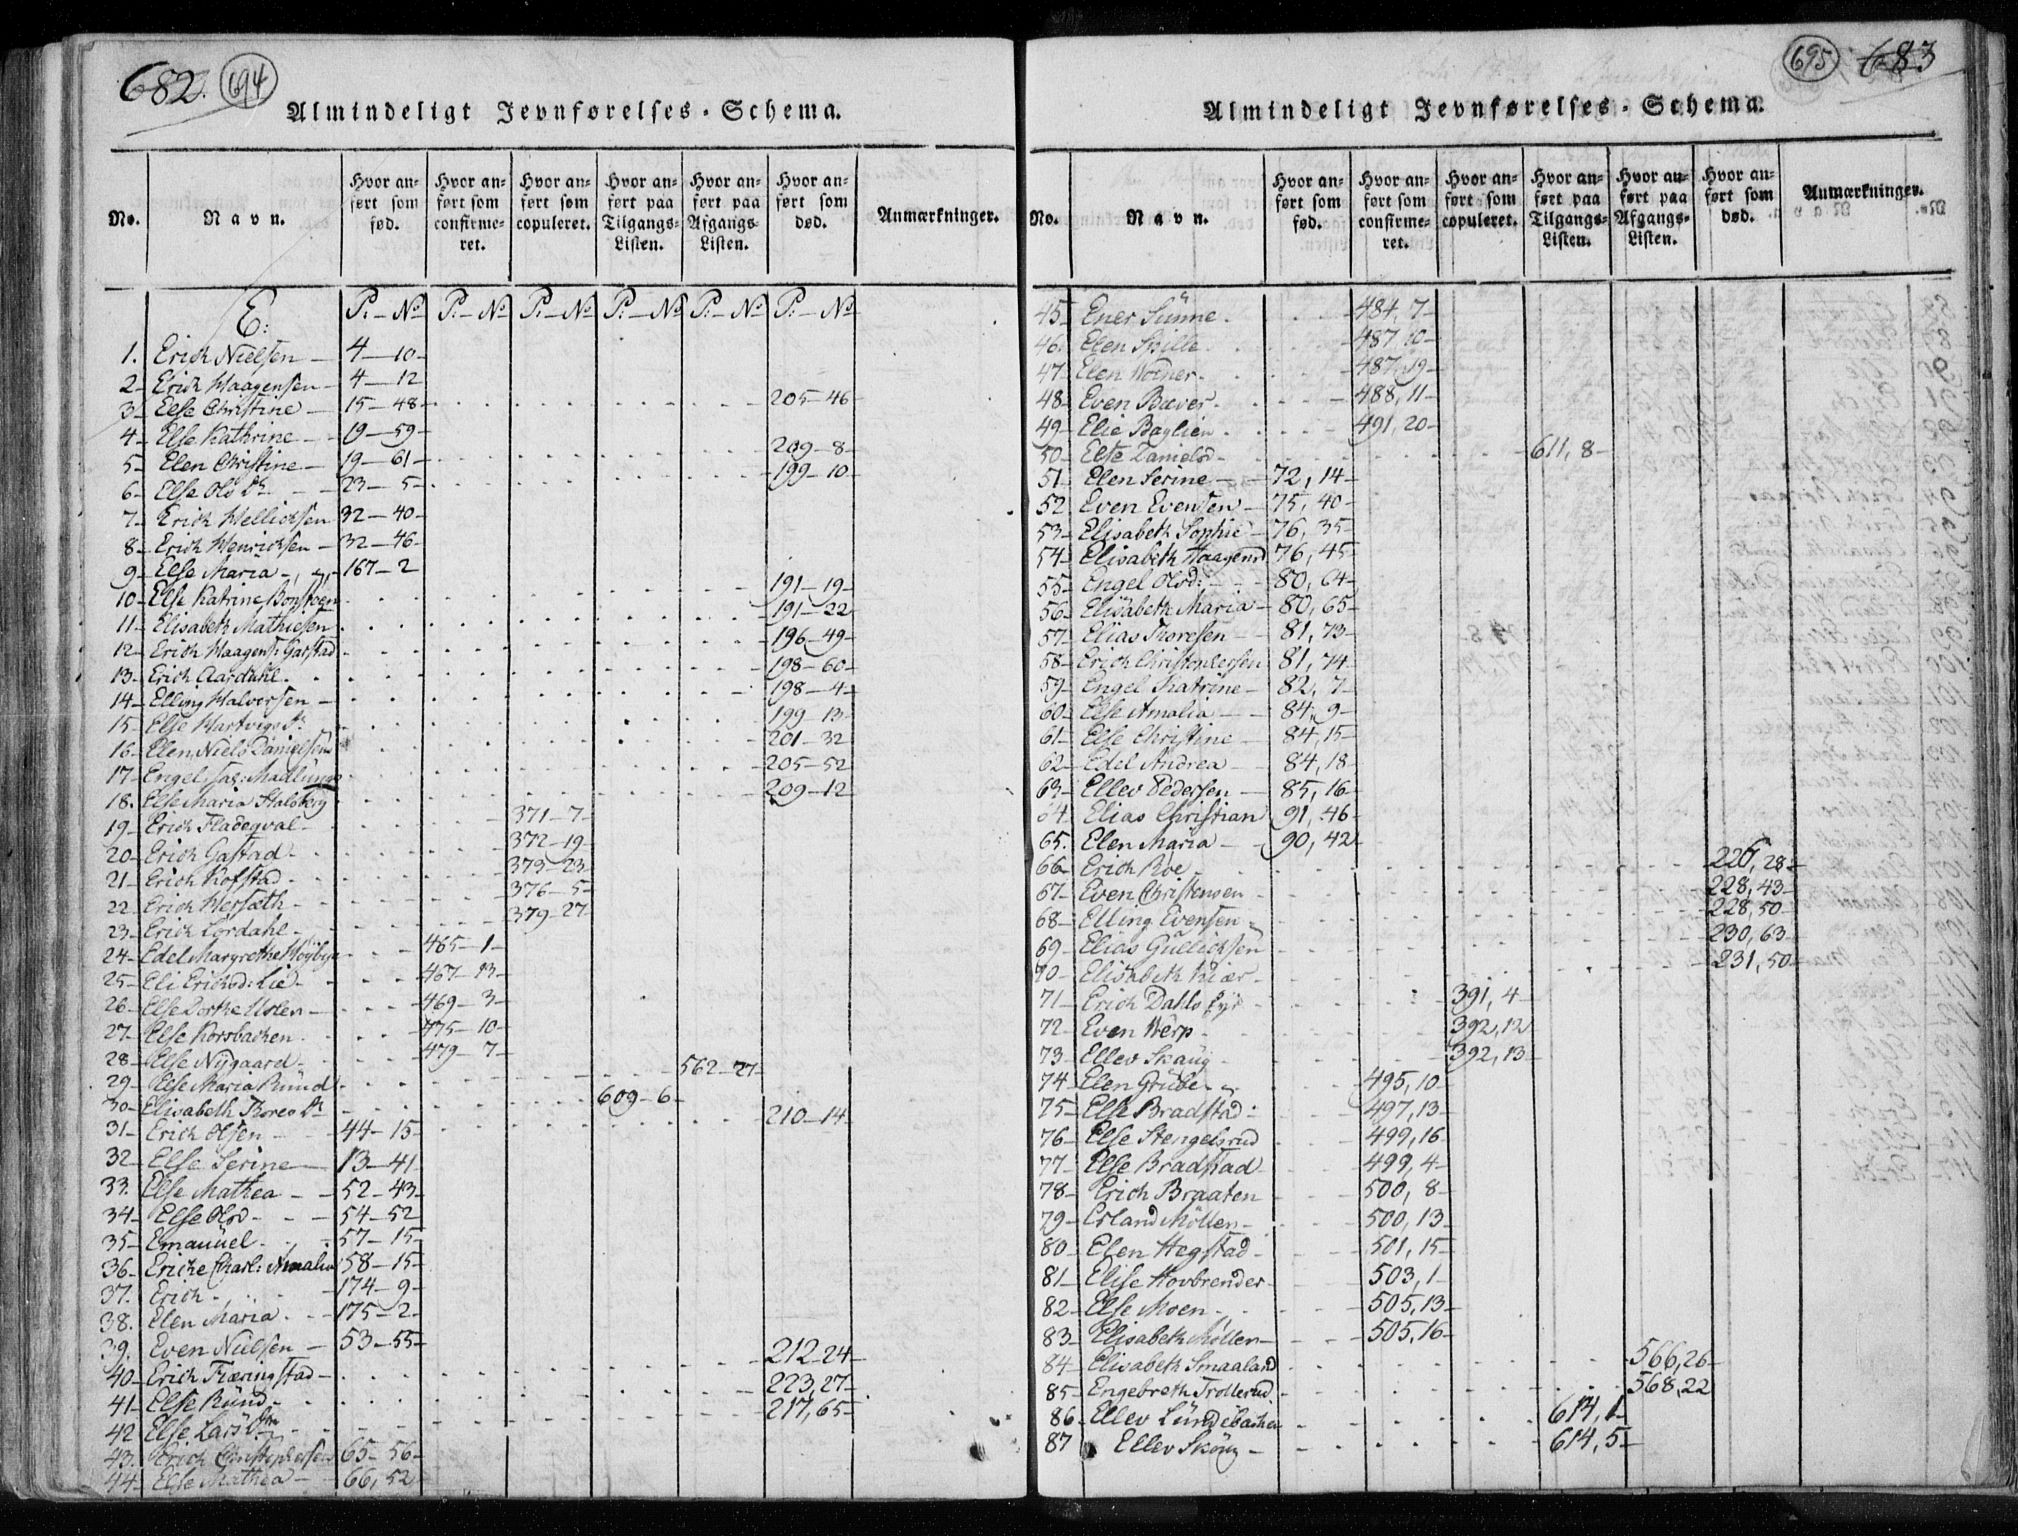 682. 694
Almindeligt Jevnførelses-Schema.
No. Navn. Hvor anført som fød. Hvor anført som confirmeret. Hvor anført som copuleret. Hvor anført paa Tilgangs-Listen. Hvor anført paa Afgangs-Listen. Hvor anført som død. Anmærkninger.
E: P. – No P. – No P. – No P. – No P. – No P. – No
1. Erich Nielsen – 4 – 10
2 – Erich Haagensen – 4 – 12
3 – Else Christine – 15 – 48 205 – 46
4 – Else Kathrine – 19 – 59
5 – Elen Christine – 19 – 61 209 – 8
6 – Else Ols Dr. 23 – 5 199 – 10
7 – Erich Hellichsen 32 – 40
8 – Erich Henrichsen – 32 – 46
9 – Else Maria – 167 – 2
10 – Else Katrine 191 – 19
11 – Elisabeth Mathiesen 191 – 22
12 – Erich Haagens: Garstad 196 – 49
13 – Erich Aardahl 198 – 60
14 – Elling Halvorsen – 198 – 4
15 – Else Hartvigs Dr. 199 – 13
16 – Elen Niels Danielsens 201 – 32
17 – Engel 205 – 52
18. Else Maria Stalsberg 209 – 12
19 – Erich Fladeqval – 371 – 7
20 – Erich Gastad – 372 – 19
21 – Erich Kofstad – 373 – 23
22 – Erich Hersæth – 376 – 5
23 – Erich Lørdahl – 379 – 27
24 – Edel Margrethe Høybye 465 – 1
25 – Eli Erichsd: Lie – 467 – 13
26 – Else Dorthe 469 – 3
27 – Else Korsbachen 475 – 10
28 – Else Nÿgaard – 479 – 7
29 – Else Maria Rund 562 – 27
30 – Elisabeth Thores Dr 609 – 6
31 – Erich Olsen 44 – 15 210 – 14
32 – Else Serine 13 – 41
33. Else Mathea – 52 – 43
34 – Else Olsd – 54 – 52
35 – Emanüel 57 – 15
36 – Eriche Charl: Amalia 58 – 15
37. Erich 174 – 9
38. Elen Maria 175 – 2
39. Even Nielsen – 53 – 55
40 – Erich Fræringstad – 212 – 24
41 – Else Ründ – 223, 27
42 Else Lars Dtr 217, 65
43. Erich Christophersen 65 – 56
44 – Else Mathea – 66, 52
695 683
Almindeligt Jevnførelses-Schema.
No. Navn. Hvor anført som fød. Hvor anført som confirmeret. Hvor anført som copuleret. Hvor anført paa Tilgangs-Listen. Hvor anført paa Afgangs-Listen. Hvor anført som død. Anmærkninger.
45 – Ener Sünne 484, 7
46. Elen Spille 487 10
47 – Elen 487, 19
48 – Even Bæver 488, 11
49 – Elie Baglien 491, 20
50 – Else Danielsd – 611, 8
51 – Elen Serine – 72, 14
52 Even Evensen – 75, 40
53 – Elisabeth Sophie – 76, 35
54 – Elisabeth Haagensd 76, 45
55 – Engel Olsd: – 80, 64
56 – Elisabeth Maria – 80, 65
57 – Elias Thoresen – 81, 73
58 – Erich Christophersen 81, 74
59 – Engel Katrine – 82, 7
60 – Else Amalia – 84, 9
61 – Else Christine – 84, 15
62 – Edel Andrea 84, 18
63 – Ellev Pedersen – 85, 16
64. Elias Christian 91, 46
65. Elen Maria – 90, 42
66 – Erich Roe 226, 28
67 – Even Christensen 228, 43
68 – Elling Evensen 228, 50
69 – Elias Gulicksen 230, 63
70 – Elisabeth Kiær 231, 50
71 – Erich Dahls 391, 4
72 – Even Werp 392, 12
73 – Ellev Skaug 392, 13
74 – Elen Grübe 495, 10
75 – Else Bradstad: 497, 13
76 – Else Stengelsrud 499, 16
77 – Else Bradstad 499, 4
78 – Erich Braaten 500, 8
79 – Erland Møllen – 500, 13
80 – Elen Hegstad – 501, 15
81 – Elise Hovbrender 503, 1
82 – Else Moen – 505, 13
83 – Elisabeth Møllen – 505, 16
84 – Elisabeth Smaaland 566, 26
85 – Engebreth Trollerud 568, 22
86 – Ellev Lündebachen 614, 1
87 Ellev Skøny – 614, 5